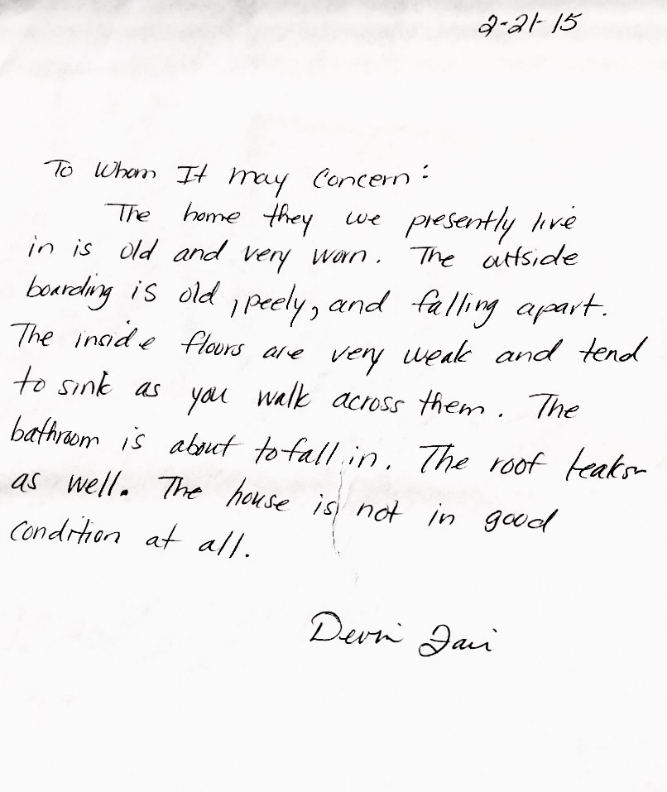 2-21-15
To Whom It may Concern:
The home they we presently live
in is old and very worn. The outside
boarding is old, peely, and falling apart.
The inside floors are very weak and tend
to sink as you walk across them. The
bathroom is about to fall in. The roof leaks
as well. The house is not in good
condition at all.
Devin